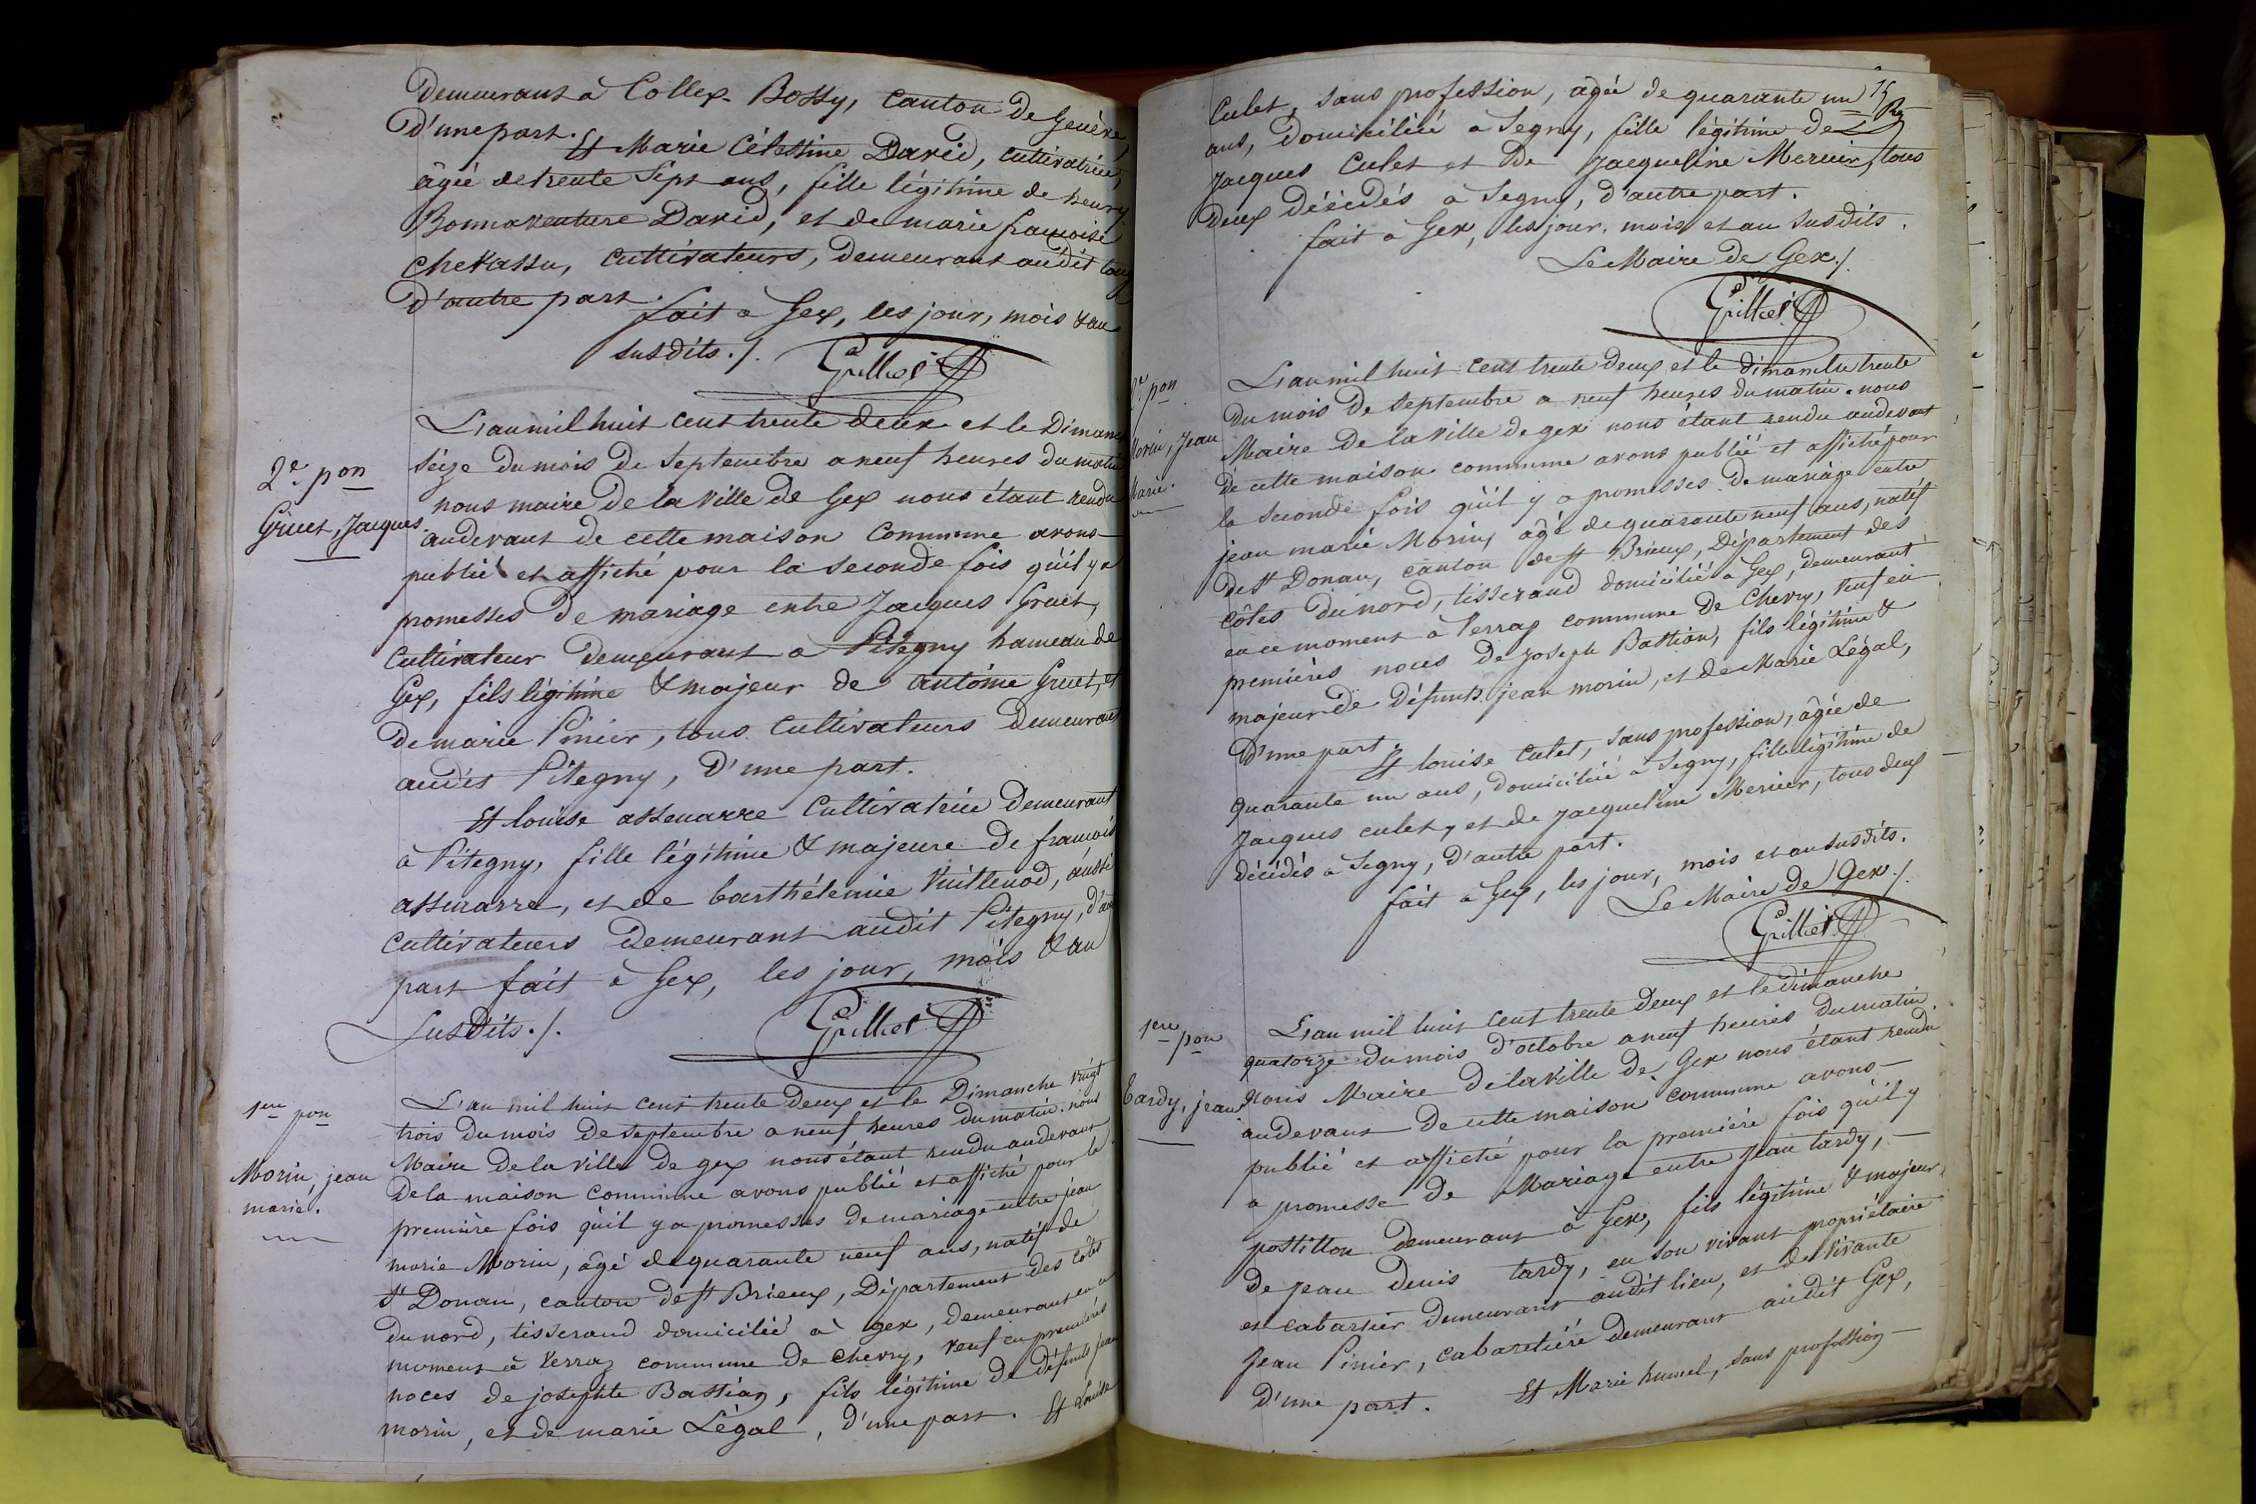 Demeurant à Collex-Bossy, canton de Genève,
D'une part. Et Marie Célestine David, cultivatrice,
âgée de trente sept ans, fille légitime de henry
Bonnaventure David, et de marie françoise
Chevassu, cultivateurs, demeurant audit
D'autre part.
fait à Gex, les jour, mois & an
susdits ./.
2e. pon
Gruet, Jacques.
L'an mil huit cent trente deux et le Dimanche
seize du mois de Septembre a neuf heures du matin
nous maire de la ville de Gex nous étant rendu
audevant de cette maison Commune avons
publié et affiché pour la seconde fois qu'il y a
promesses de mariage entre Jacques Gruet,
Cultivateur demeurant a Pitegny hameau de
Gex, fils légitime & majeur de antoine Gruet, et
de marie Pinier, tous cultivateurs Demeurant
audit Pitegny, D'une part.
Et louise assenarre Cultivatrice Demeurant
à Pitegny, fille légitime & majeure de francois
assenarre, et de barthélemie Vuillenod, aussi
cultivateurs Demeurant audit Pitegny,
part fait à Gex, les jour, mois & an
Susdits ./.
1ere pon
Morin, jean
marie.
L'an mil huit cent trente deux et le Dimanche vingt
trois du mois de septembre a neuf heures du matin. nous
Maire de la ville de gex nous étant rendu audevant
De la maison commune avons publié et affiché pour la
première fois qu'il y a promesses de mariage entre jean
marie Morin, âgé de quarante neuf ans, natif de
St Donan, canton de St Brieux, Département des cotes
du nord, tisserand domicilié à gex, demeurant en ce
moment à Verraz commune de Chevry, veuf en premières
noces de josephte Bastian, fils légitime de défunts jean
morin, et de marie Légal, d'une part. Et Louise
Culet, sans profession, âgée de quarante un
ans, Domiciliée à Segny, fille légitime de
Jacques Culet et de Jacqueline Mercier, tous
Deux Décédés a Segny, d'autre part.
fait à Gex, les jour, mois et an susdits.
Le Maire de Gex ./.
2e. pon
Morin, Jean
Marie.
L'an mil huit cent trente deux et le dimanche trente
Du mois de septembre a neuf heures du matin. nous
Maire de la Ville de gex nous étant rendu audevant
de cette maison commune avons publié et affiché pour
la seconde fois qu'il y a promesses de mariage entre
jean marie Morin, âgé de quarante neuf ans, natif
de St Donan, canton de St Brieux, Département des
côtes du nord, tisserand domicilié a Gex, demeurant
en ce moment à Verraz commune de Chevry, veuf en
premières noces de Joseph Bastian, fils légitime &
majeur de défunts jean morin, et de Marie Légal,
D'une part.
Et louise Culet, sans profession, âgée de
Quarante un ans, domiciliée à Segny, fille légitime de
Jacques culet, et de jacqueline Mercier, tous deux
décédés à Segny, d'autre part.
fait à Gex, les jour, mois et an susdits.
Le Maire de Gex ./.
1ere pon
Tardy, jean
L'an mil huit cent trente deux et le dimanche
quatorze du mois d'octobre a neuf heures du matin.
nous Maire de la Ville de Gex nous étant rendu
audevant de cette maison commune avons
publié et affiché pour la première fois qu'il y
a promesse de Mariage entre Jean tardy,
postillon demeurant à Gex, fils légitime & majeur
de jean Denis tardy, en son vivant propriétaire
et cabartier demeurant audit lieu, et de vivante
Jean Pinier, cabaretière demeurant audit Gex,
D'une part. Et Marie humel, sans profession